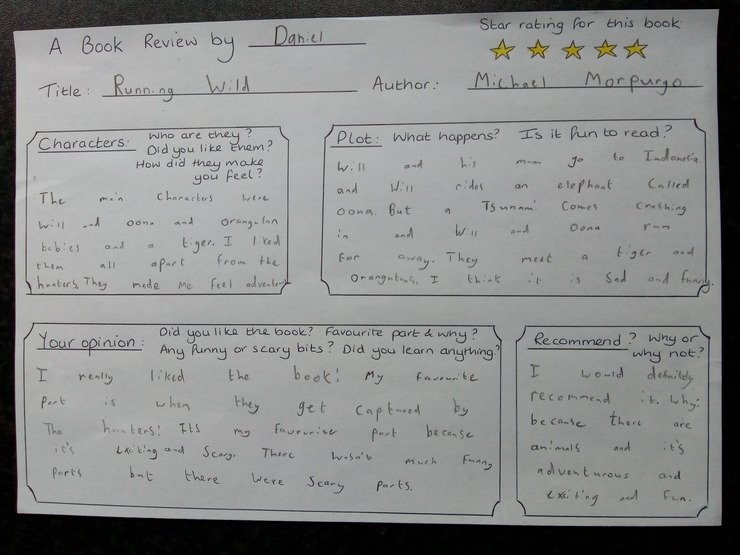 A Book Review by Daniel
Star rating for this book
Title: Running Wild
Author: Michael Morpurgo
Characters: Who are they?
Did you like them?
How did they make
you feel?
The main Characters were
Will and oona and orangutan
babies and a tiger. I liked
them all apart from the
hunters. They made me feel adventure
Plot: What happens? Is it fun to read?
Will and his mum go to Indonesia
and Will rides an elephant Called
oona. But a Tsunami Comes Crashing
in and Will and Oona run
far away. They meet a tiger and
Orangutans. I think it is Sad and funny.
Your opinion: Did you like the book? Favourite part & why?
Any funny or scary bits? Did you learn anything?
I really liked the book! My favourite
Part is when they get Captured by
The hunters! Its my favourite part because
it's exciting and Scary. There wasn't much Funny
parts but there were Scary parts.
Recommend? Why or
why not?
I would definitely
recommend it. Why;
because there are
animals and it's
adventurous and
exciting and fun.